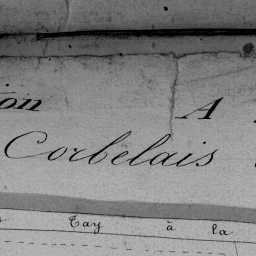 ion A
Corbelais
Tay à la